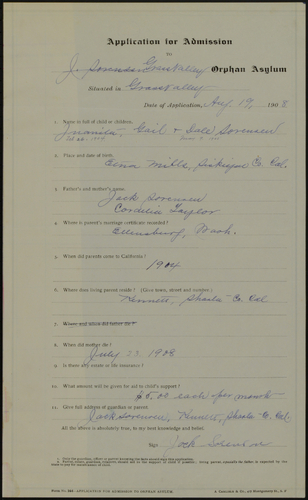 Application for Admission
TO
J. Sorensen Grass Valley Orphan Asylum
Situated in Grass Valley
Date of Application, Aug 19, 1908
1. Name in full of child or children.
Juanita, Gail & Dale Sorensen
2. Place and date of birth.
Mills, Siskiyou Co. Cal.
3. Father's and mother's name.
Jack Sorensen
Cordelia Taylor
4. Where is parent's marriage certificate recorded?
Ellensburg, Wash.
5. When did parents come to California?
1904
6. Where does living parent reside? (Give town, street and number)
Kennett, Shasta Co. Cal
7. Where and when did father die?
8. When did mother die?
July 23 1908
9. Is there any estate or life insurance?
10. What amount will be given for aid to child's support?
$5.00 each per month
11. Give full address of guardian or parent
Jack Sorensen, Kennett, Shasta Co. Cal.
All the above is absolutely true, to my best knowledge and belief.
Sign Jack Sorensen
APPLICATION FOR ADMISSION TO ORPHAN ASYLUM